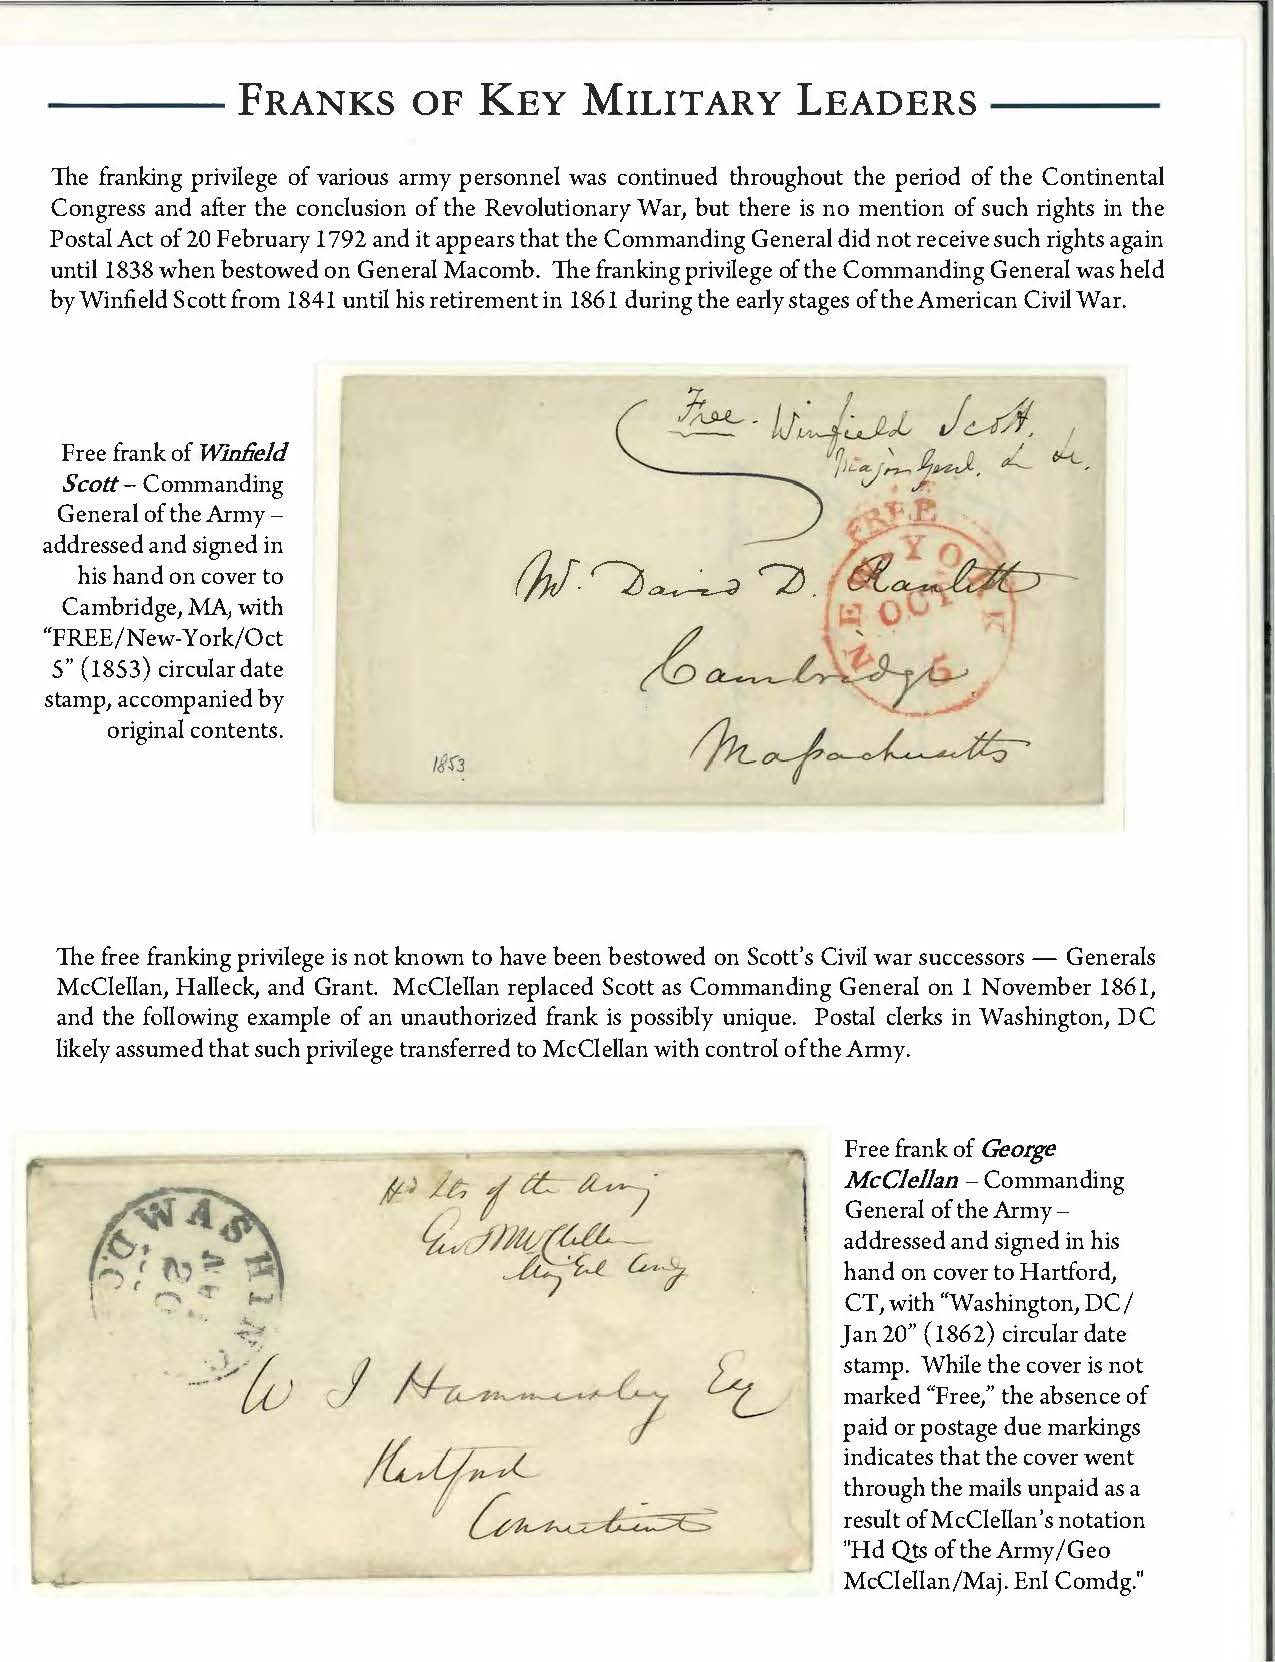 FRANKS OF KEY MILITARY LEADERS
The franking privilege of various army personnel was continued throughout the period of the Continental
Congress and after the conclusion of the Revolutionary War, but there is no mention of such rights in the
Postal Act of 20 February 1792 and it appears that the Commanding General did not receive such rights again
until 1838 when bestowed on General Macomb. The franking privilege of the Commanding General was held
by Winfield Scott from 1841 until his retirement in 1861 during the early stages of the American Civil War.
Free frank of Winfield
Scott – Commanding
General of the Army –
addressed and signed in
his hand on cover to
Cambridge, MA, with
“FREE/New-York/Oct
5” (1853) circular date
stamp, accompanied by
original contents.
Free. Winfield Scott.
Major Genl.
FREE
NEW YORK
OCT
5
Mr. David D. Ranlett
Cambridge
Massachusetts
1853
The free franking privilege is not known to have been bestowed on Scott’s Civil war successors — Generals
McClellan, Halleck, and Grant. McClellan replaced Scott as Commanding General on 1 November 1861,
and the following example of an unauthorized frank is possibly unique. Postal clerks in Washington, DC
likely assumed that such privilege transferred to McClellan with control of the Army.
Hd Qts of the Army
Geo McClellan
Maj Enl Comdg
WASHING D.C.
20
W J Hammersley Esq
Hartford
Connecticut
Free frank of George
McClellan – Commanding
General of the Army –
addressed and signed in his
hand on cover to Hartford,
CT, with “Washington, DC/
Jan 20” (1862) circular date
stamp. While the cover is not
marked “Free,” the absence of
paid or postage due markings
indicates that the cover went
through the mails unpaid as a
result of McClellan’s notation
"Hd Qts of the Army/Geo
McClellan/Maj. Enl Comdg."